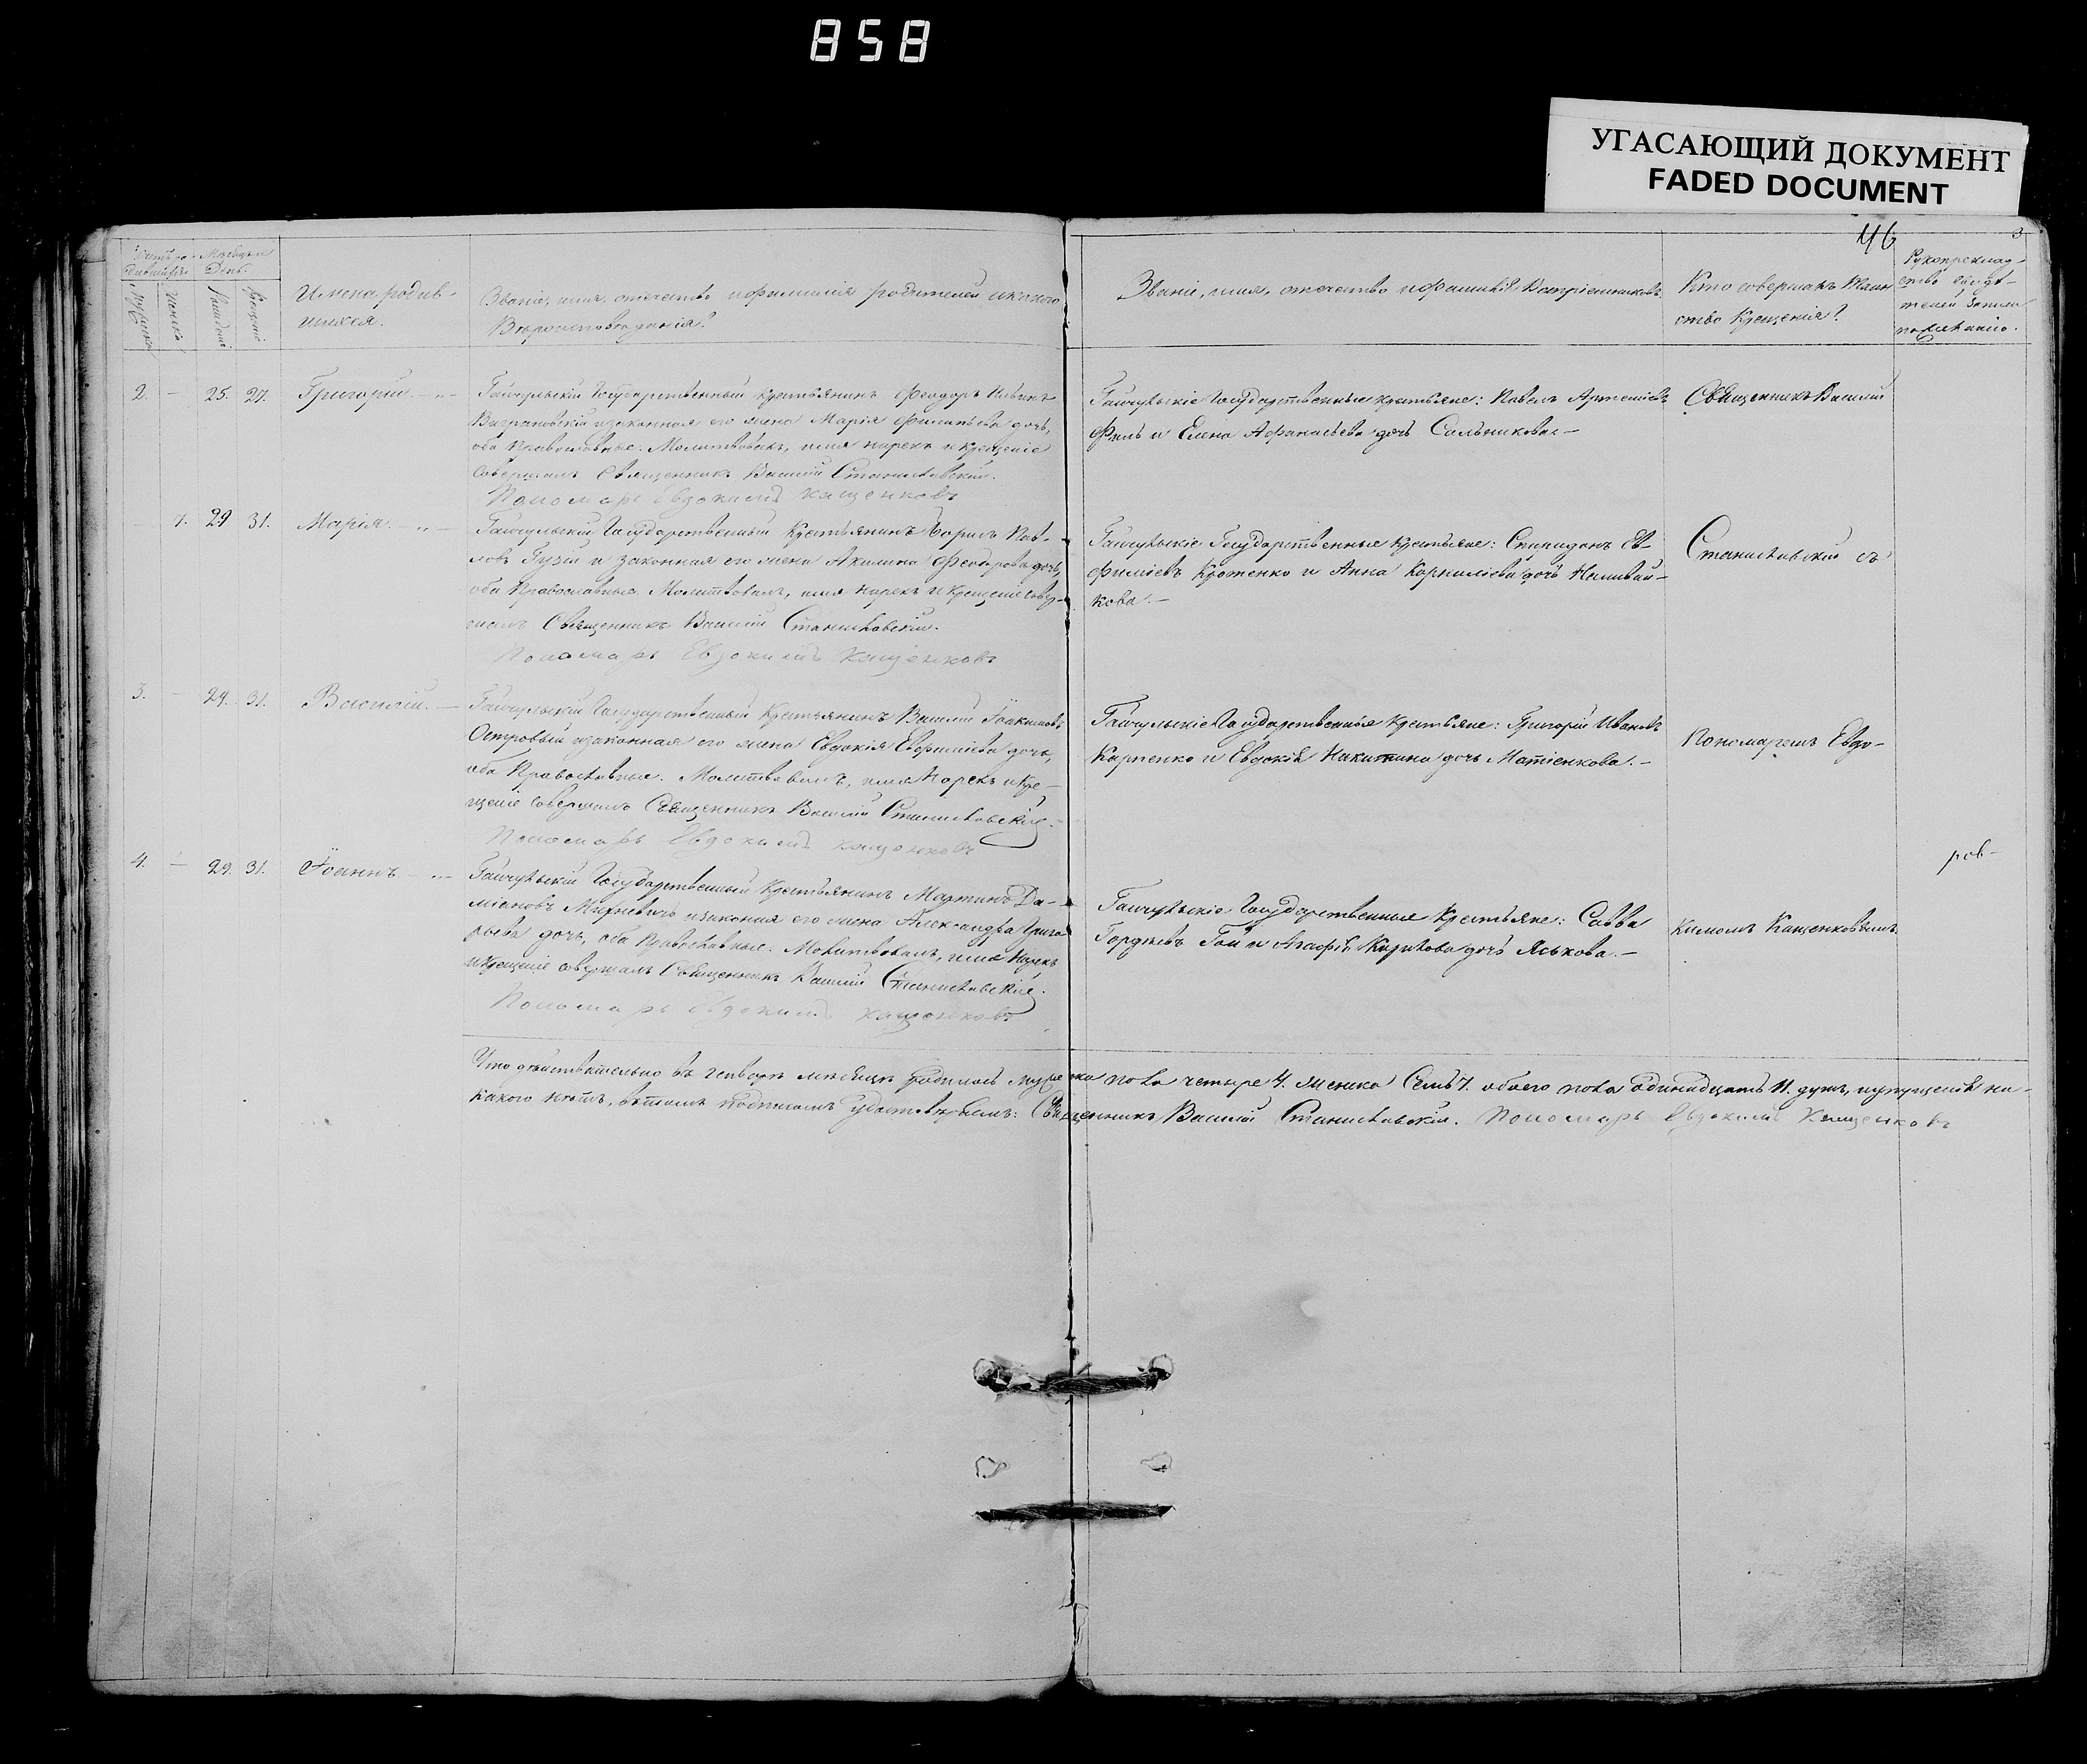 858
УГАСАЮЩИЙ ДОКУМЕНТ
FADED DOCUMENT
46
3
Мѣсяцъ и
День.
Имена родив-
шихся.
Званіе, имя, отечество и фамилія родителей и какого
Вѣроисповѣданія?
Званіе, имя, отечество и фамилія Воспріемниковъ.
Кто совершалъ Таин
ство Крещенія?
Рукоприклад-
ство свидѣ-
телей записи
по желанію.
2. — 25. 27. Григорій.
Гайчульскій Государственный Крестьянинъ Феодоръ
и законная его жена Марія дочь,
оба Православные. Молитвовалъ, имя нарекъ и крещеніе
совершалъ Священникъ Василій Станиславскій.
Пономарь Евдокимъ Кащенковъ
Гайчульскіе Государственные крестьяне: Павелъ
и Елена Афанасьева дочь Сальникова. —
Священникъ Василій
7. 29 31. Марія.
Гайчульскій Государственный Крестьянинъ Пав-
ловъ и законная его жена Акилина Феодорова дочь,
оба Православные. Молитвовалъ, имя нарекъ и Крещеніе совер-
шалъ Священникъ Василій Станиславскій.
Пономарь Евдокимъ Кащенковъ
Гайчульскіе Государственные крестьяне: Спиридонъ Ев-
фиміевъ и Анна Корниліева дочь Наливай-
кова. —
Станиславскій съ
3. — 29. 31. Василій. —
Гайчульскій Государственный Крестьянинъ Василій Іоакимовъ
Островый и законная его жена Евдокія Евфиміева дочь,
оба Православные. Молитвовалъ, имя Нарекъ и Кре-
щеніе совершалъ Священникъ Василій Станиславскій.
Пономарь Евдокимъ Кащенковъ
Гайчульскіе Государственные крестьяне: Григорій Ивановъ
Карпенко и Евдокія Никитина дочь Матіенкова. —
Пономаремъ Евдо-
4. — 29. 31. Іоаннъ
Гайчульскій Государственный Крестьянинъ Мартинъ Да-
міановъ и законная его жена Александра Григо
рьева дочь, оба Православные. Молитвовалъ, имя Нарекъ
и Крещеніе совершалъ Священникъ Василій Станиславскій.
Пономарь Евдокимъ Кащенковъ
Гайчульскіе Государственные Крестьяне: Савва
Гордѣевъ Гай и Агафія Кирилова дочь Яськова. —
кимомъ Кащенковымъ.
ров-
Что дѣйствительно въ Генварѣ мѣсяцѣ родилось мужеска пола четыре 4. женска Семь 7. обоего пола одинадцать 11. душъ, и упущенія ни-
какого нѣтъ, въ томъ подписомъ удостовѣряемъ: Священникъ Василій Станиславскій. Пономарь Евдокимъ Кащенковъ